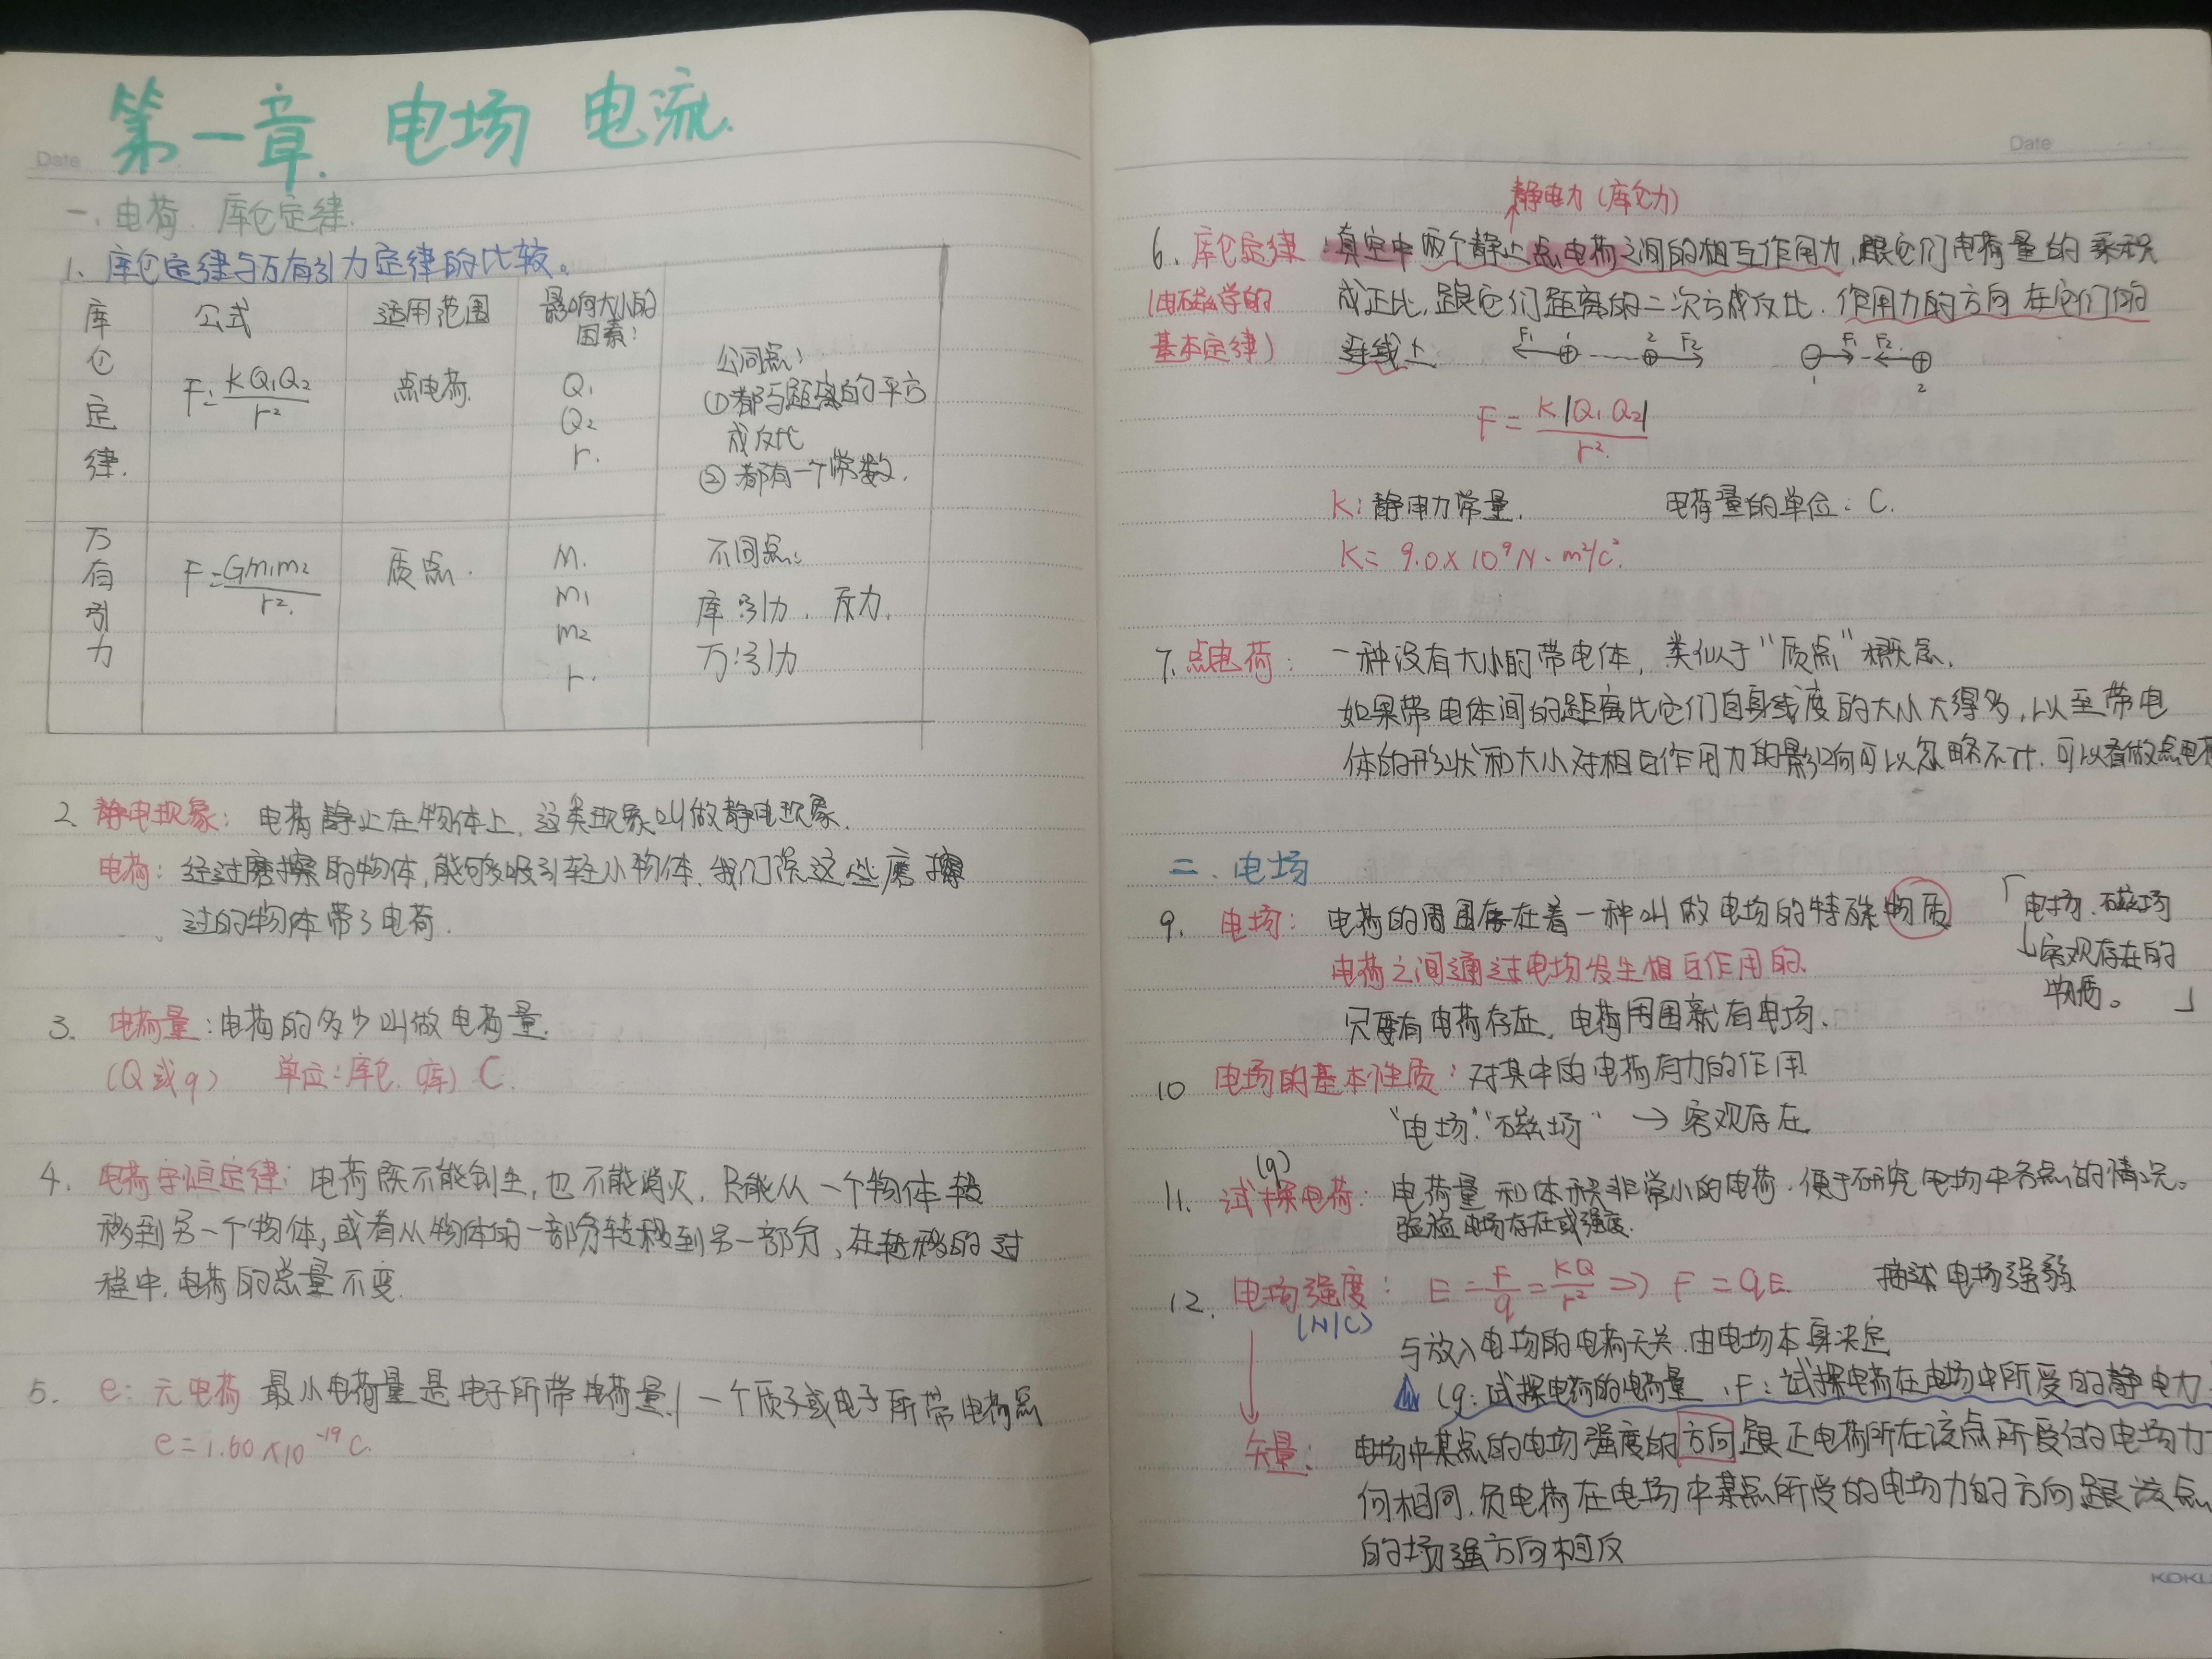 第一章. 电场 电流.
Date
一、电荷. 库仑定律.
1、库仑定律与万有引力定律的比较。
库仑定律.
公式
适用范围
影响大小的因素:
F=KQ₁Q₂/r²
点电荷.
Q₁
Q₂
r.
公同点:
①都与距离的平方
成反比
②都有一个常数.
万有引力
F=Gm₁m₂/r².
质点.
M.
m₁
m₂
r.
不同点:
库:引力. 斥力.
万:引力
2. 静电现象: 电荷静止在物体上, 这类现象叫做静电现象.
电荷: 经过磨擦的物体,能够吸引轻小物体. 我们说这些磨擦
过的物体带了电荷.
3. 电荷量:电荷的多少叫做电荷量.
(Q或q) 单位:库仑. (库) C.
4. 电荷守恒定律: 电荷既不能创生, 也不能消灭. 只能从一个物体转
移到另一个物体, 或者从物体的一部分转移到另一部分, 在转移的过
程中. 电荷的总量不变.
5. e: 元电荷 最小电荷量是电子所带电荷量./一个质子或电子所带电荷量
e=1.60×10⁻¹⁹C.
Date
静电力 (库仑力)
6. 库仑定律:真空中两个静止点电荷之间的相互作用力, 跟它们电荷量的乘积
(电磁学的 成正比, 跟它们距离的二次方成反比. 作用力的方向在它们的
基本定律) 连线上. F₁ 1 2 F₂ F₁ F₂ 1 2
F=K|Q₁Q₂|/r².
K:静电力常量. 电荷量的单位: C.
K= 9.0×10⁹N·m²/C².
7. 点电荷: 一种没有大小的带电体, 类似于“质点”概念.
如果带电体间的距离比它们自身线度的大小大得多, 以至带电
体的形状和大小对相互作用力的影响可以忽略不计. 可以看做点电荷
二. 电场
9. 电场: 电荷的周围存在着一种叫做电场的特殊物质
「电场. 磁场
↓客观存在的
物质。」
电荷之间通过电场发生相互作用的.
只要有电荷存在, 电荷周围就有电场.
10 电场的基本性质: 对其中的电荷有力的作用
“电场”“磁场” → 客观存在
(q)
11. 试探电荷: 电荷量和体积非常小的电荷. 便于研究电场中各点的情况。
验验电场存在或强度.
12. 电场强度: E=F/q=KQ/r²⇒ F=qE. 描述电场强弱
(N/C)
与放入电场的电荷无关. 由电场本身决定
(q:试探电荷的电荷量 , F:试探电荷在电场中所受的静电力
矢量: 电场中某点的电场强度的方向跟正电荷所在该点所受的电场力方
向相同. 负电荷在电场中某点所受的电场力的方向跟该点
的场强方向相反
KOKU